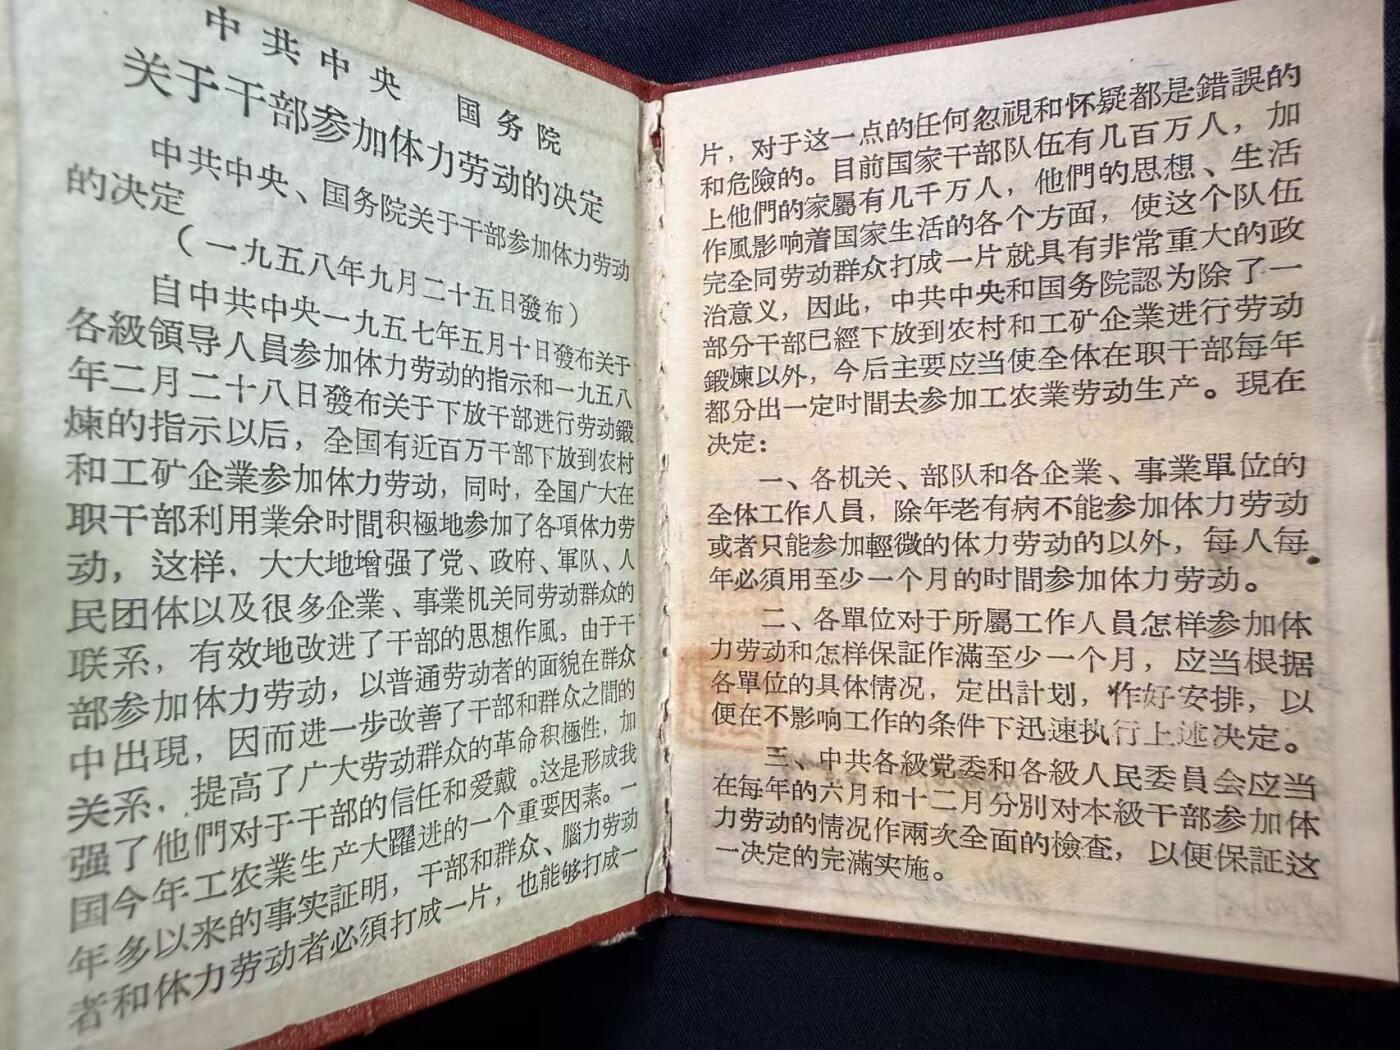 中共中央 国务院
关于干部参加体力劳动的决定
中共中央、国务院关于干部参加体力劳动
的决定
（一九五八年九月二十五日發布）
自中共中央一九五七年五月十日發布关于
各級領导人員参加体力劳动的指示和一九五八
年二月二十八日發布关于下放干部进行劳动鍛
煉的指示以后，全国有近百万干部下放到农村
和工矿企業参加体力劳动，同时，全国广大在
职干部利用業余时間积極地参加了各項体力劳
动，这样，大大地增强了党、政府、軍队、人
民团体以及很多企業、事業机关同劳动群众的
联系，有效地改进了干部的思想作風。由于干
部参加体力劳动，以普通劳动者的面貌在群众
中出現，因而进一步改善了干部和群众之間的
关系，提高了广大劳动群众的革命积極性，加
强了他們对于干部的信任和爱戴。这是形成我
国今年工农業生产大躍进的一个重要因素。一
年多以来的事实証明，干部和群众、腦力劳动
者和体力劳动者必須打成一片，也能够打成一
片，对于这一点的任何忽視和怀疑都是錯誤的
和危險的。目前国家干部队伍有几百万人，加
上他們的家屬有几千万人，他們的思想、生活
作風影响着国家生活的各个方面，使这个队伍
完全同劳动群众打成一片就具有非常重大的政
治意义，因此，中共中央和国务院認为除了一
部分干部已經下放到农村和工矿企業进行劳动
鍛煉以外，今后主要应当使全体在职干部每年
都分出一定时間去参加工农業劳动生产。現在
决定：
一、各机关、部队和各企業、事業單位的
全体工作人員，除年老有病不能参加体力劳动
或者只能参加輕微的体力劳动的以外，每人每
年必須用至少一个月的时間参加体力劳动。
二、各單位对于所屬工作人員怎样参加体
力劳动和怎样保証作滿至少一个月，应当根据
各單位的具体情况，定出計划，作好安排，以
便在不影响工作的条件下迅速执行上述决定。
三、中共各級党委和各級人民委員会应当
在每年的六月和十二月分別对本級干部参加体
力劳动的情况作兩次全面的檢查，以便保証这
一决定的完滿实施。